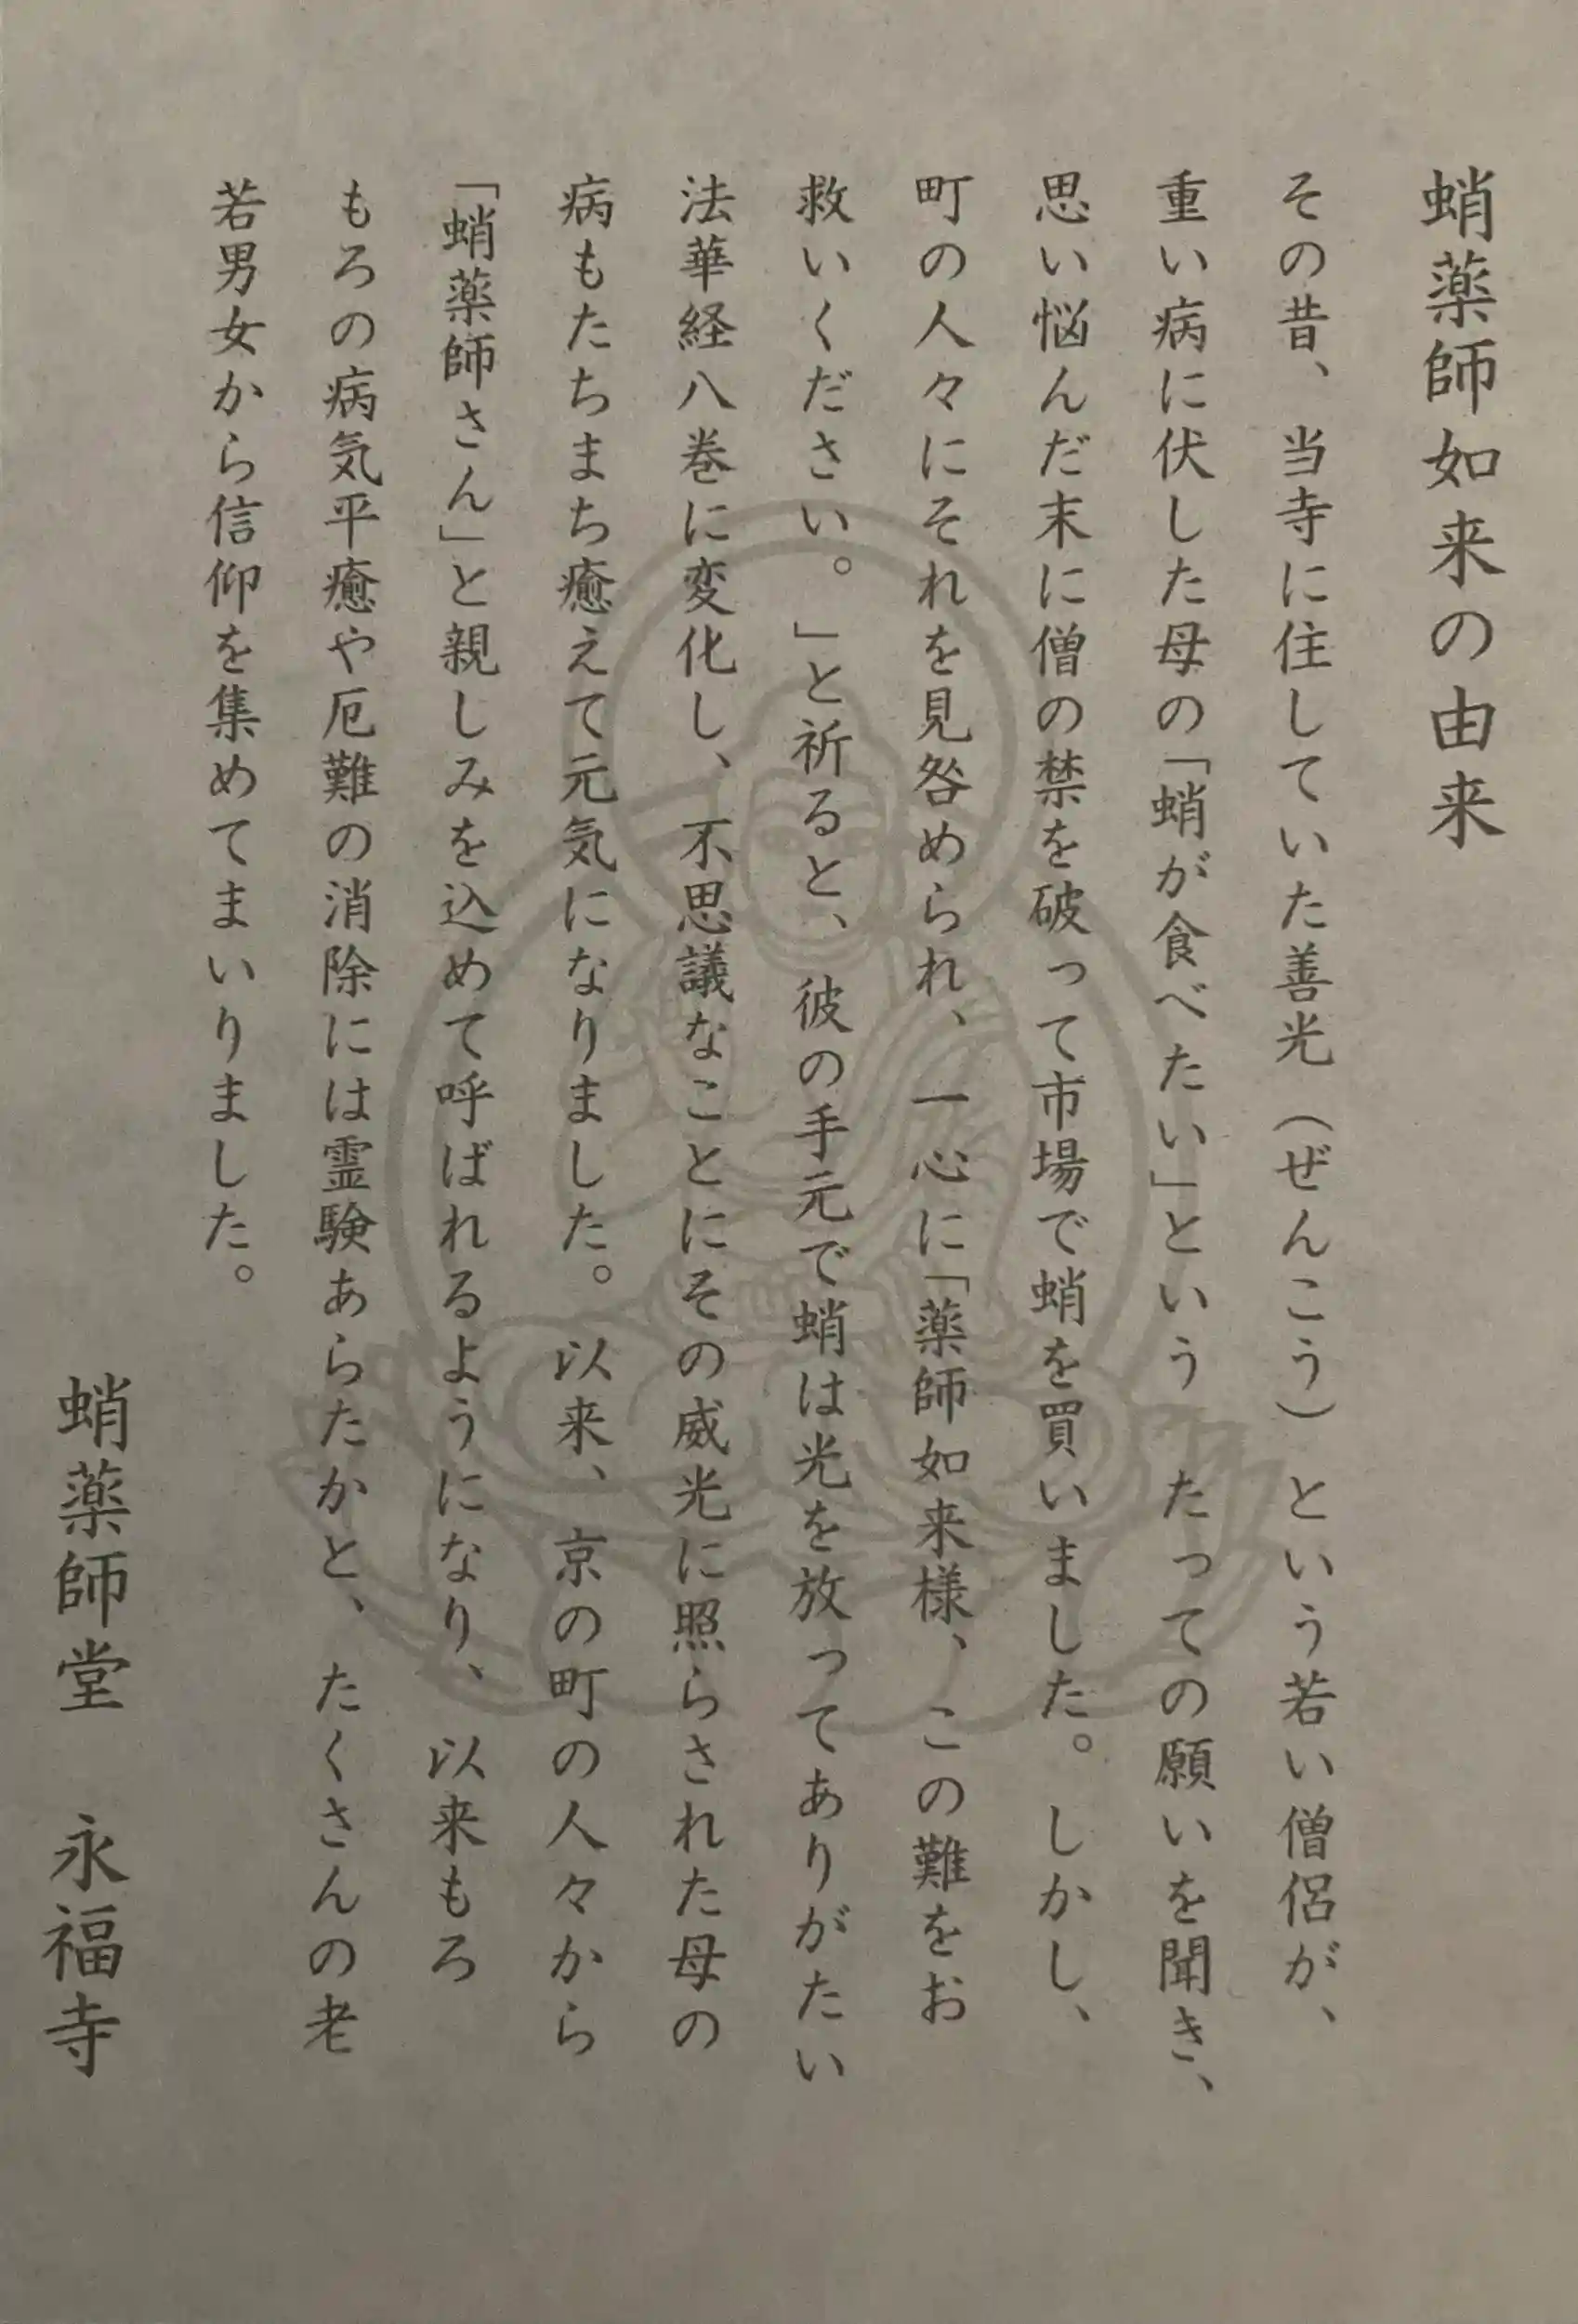 蛸薬師如来の由来
その昔、当寺に住していた善光（ぜんこう）という若い僧侶が、
重い病に伏した母の「蛸が食べたい」という　たっての願いを聞き、
思い悩んだ末に僧の禁を破って市場で蛸を買いました。しかし、
町の人々にそれを見咎められ、一心に「薬師如来様、この難をお
救いください。」と祈ると、彼の手元で蛸は光を放ってありがたい
法華経八巻に変化し、不思議なことにその威光に照らされた母の
病もたちまち癒えて元気になりました。以来、京の町の人々から
「蛸薬師さん」と親しみを込めて呼ばれるようになり、以来もろ
もろの病気平癒や厄難の消除には霊験あらたかと、たくさんの老
若男女から信仰を集めてまいりました。
蛸薬師堂　永福寺